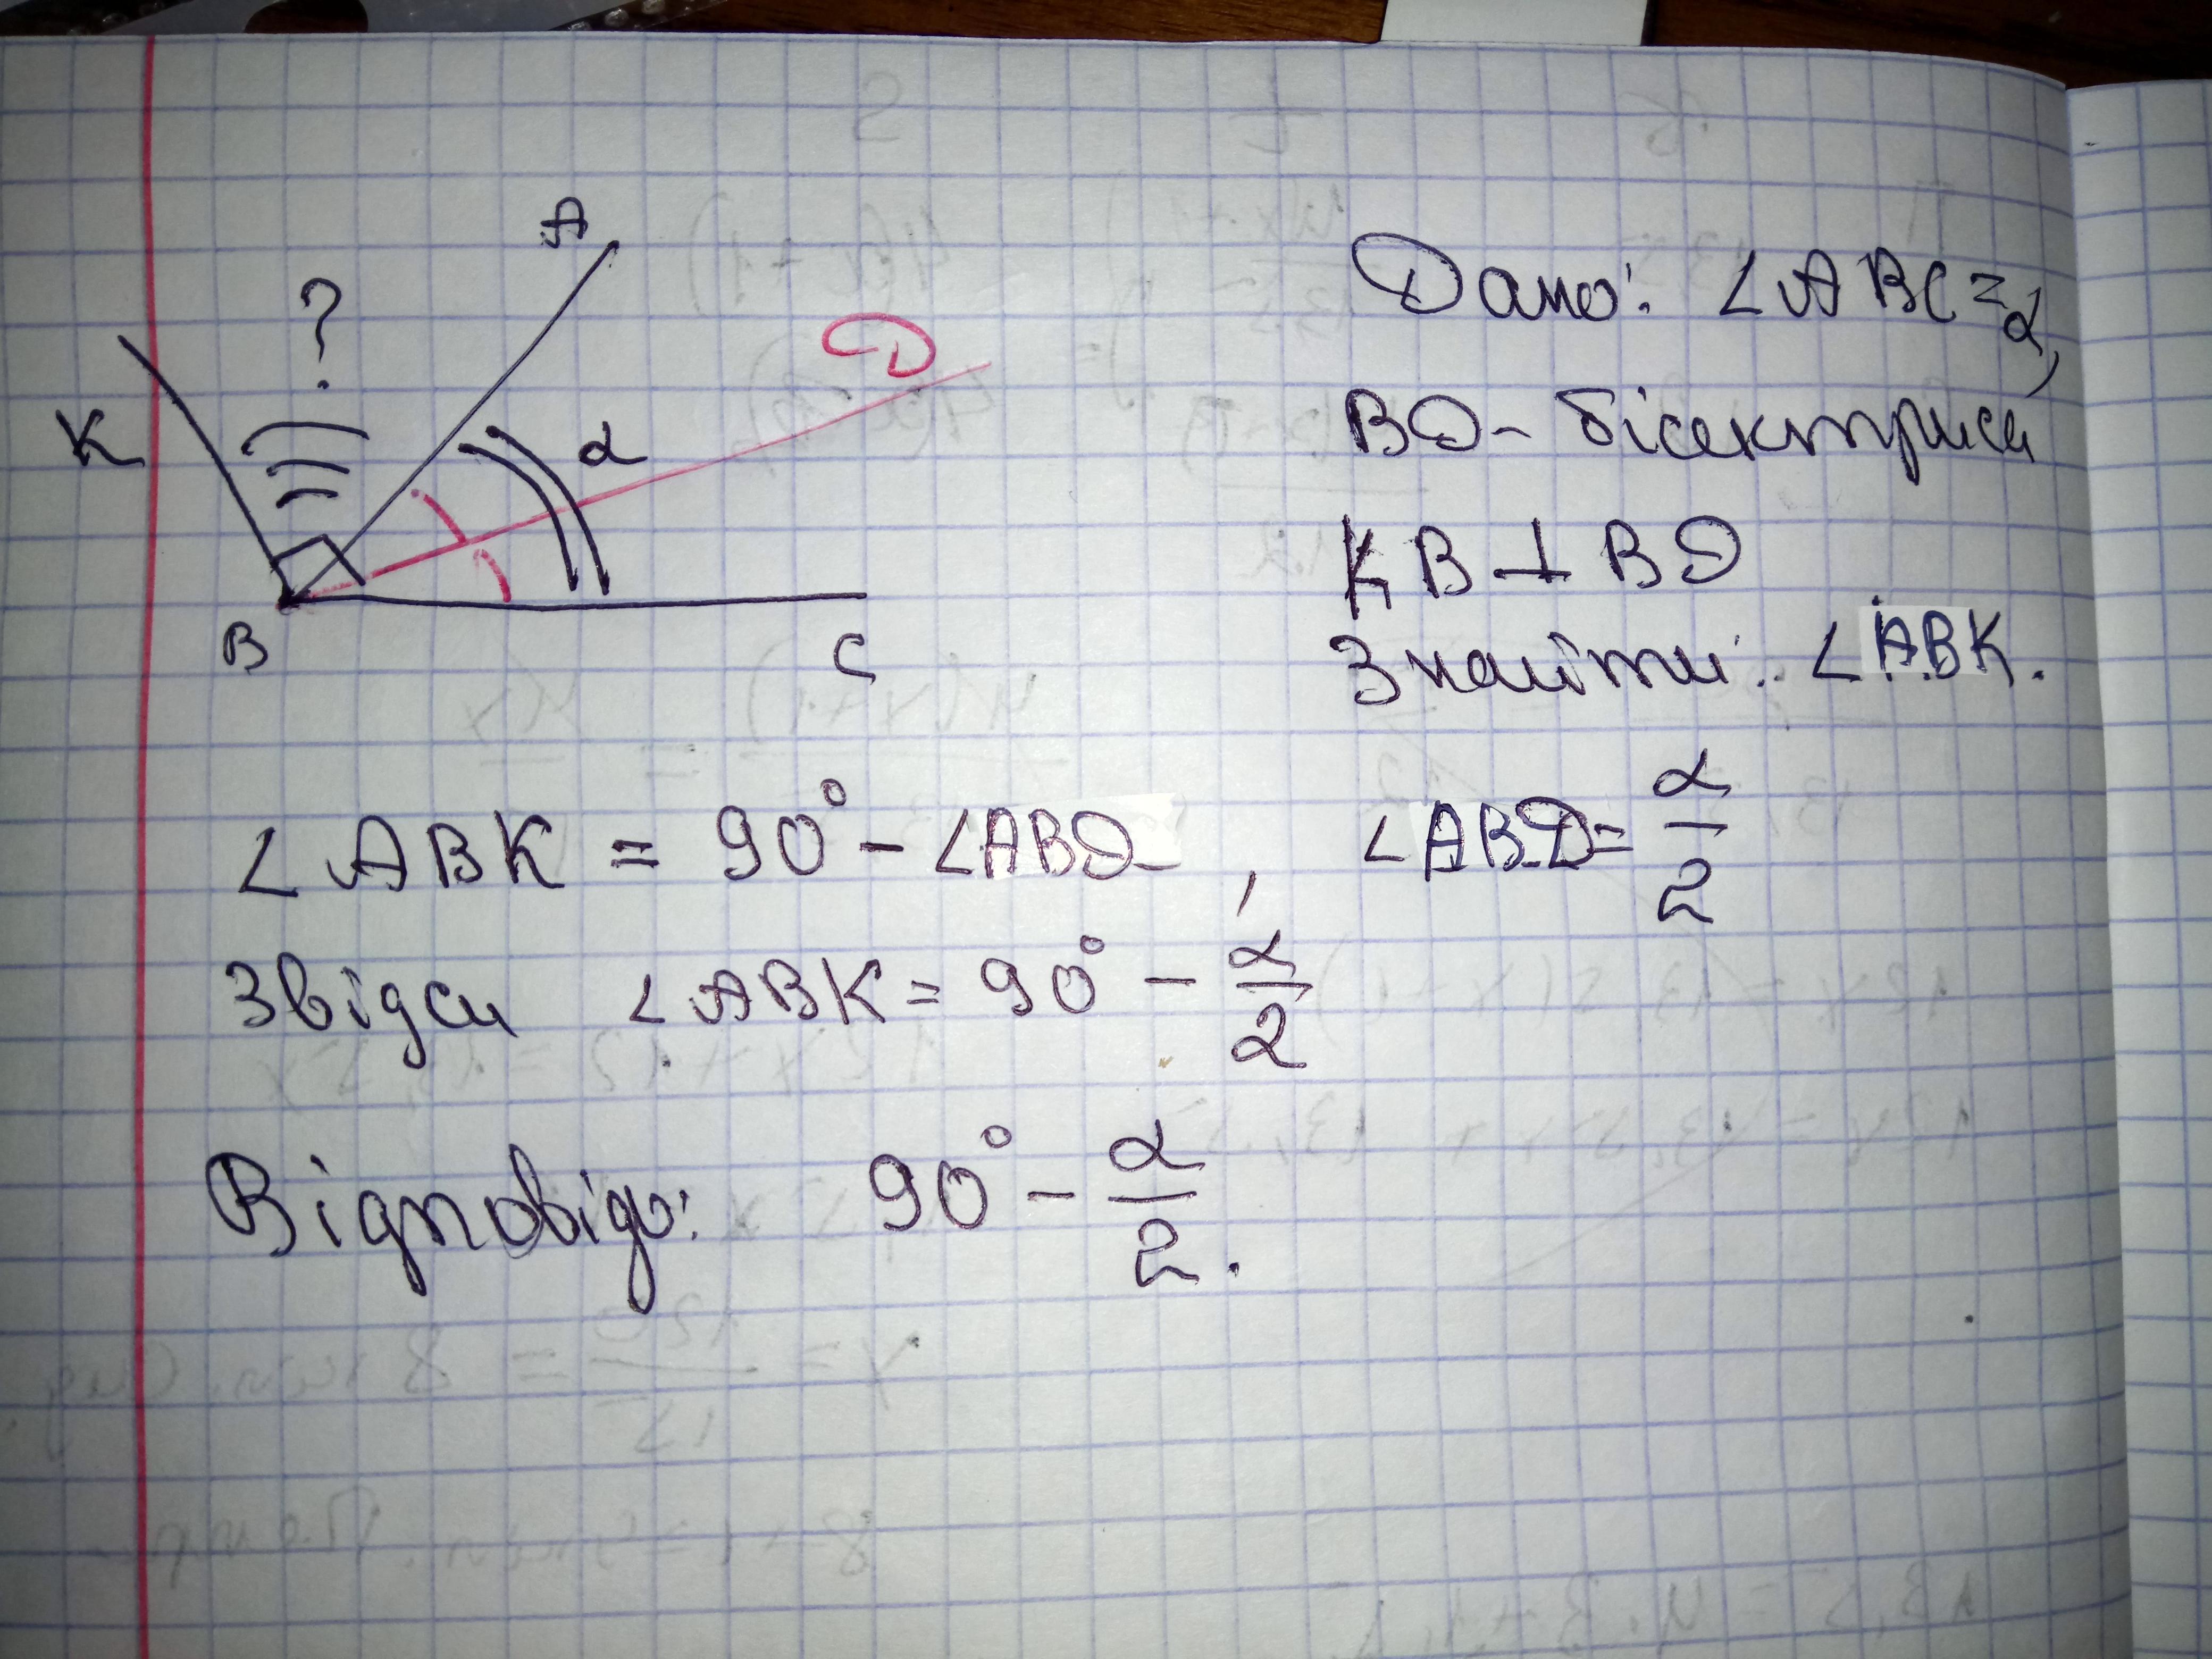 A
?
D
K
α
B
C
Дано: ∠ABC=α,
BD - бісектриса
KB ⊥ BD
Знайти: ∠ABK.
∠ABK = 90° - ∠ABD, ∠ABD = α/2
Звідси ∠ABK = 90° - α/2
Відповідь: 90° - α/2.